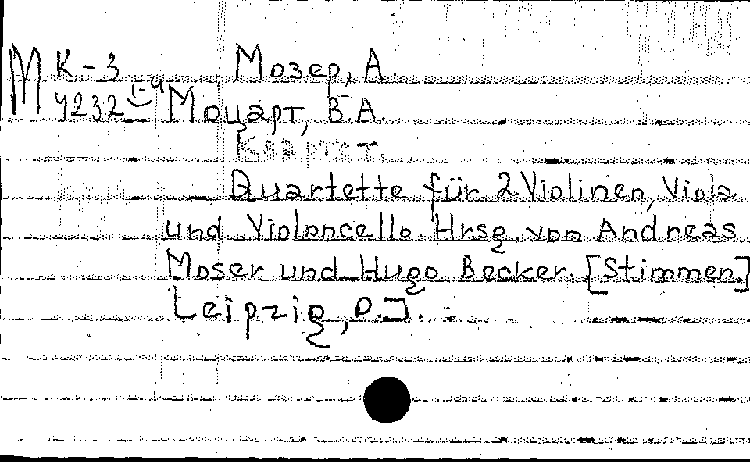 М К-3 Мозер, А.
4232 1-4 Моцарт, В.А.
Квартет.
Quartette für 2 Violinen, Viola
und Violoncello. Hrsg. von Andreas
Moser und Hugo Becker. [Stimmen.]
Leipzig, o.J.